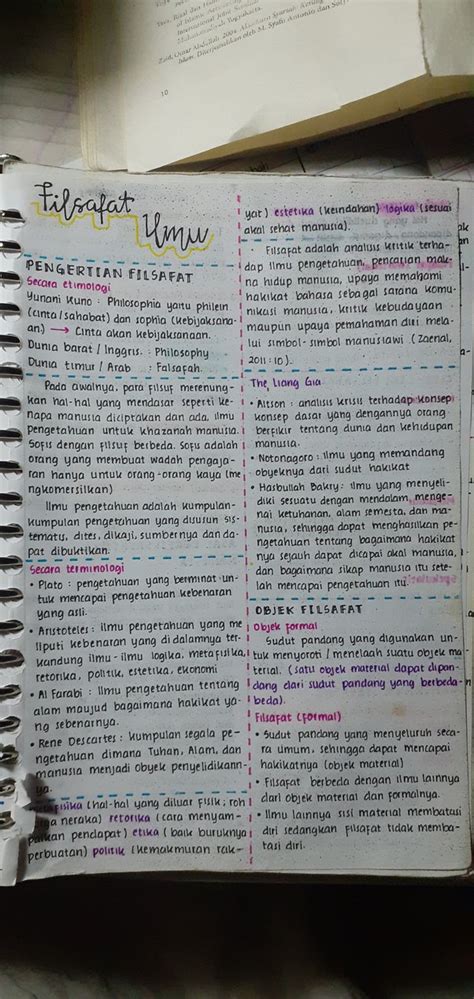 10
Filsafat
Ilmu
PENGERTIAN FILSAFAT
Secara etimologi
Yunani Kuno : Philosophia yaitu philein
(cinta/sahabat) dan sophia (kebijaksana-
an) → Cinta akan kebijaksanaan.
Dunia barat / Inggris : Philosophy
Dunia timur / Arab : Falsafah.
Pada awalnya, para filsuf merenung-
kan hal-hal yang mendasar seperti ke-
napa manusia diciptakan dan ada, ilmu
pengetahuan untuk khazanah manusia.
Sofis dengan filsuf berbeda. Sofis adalah
orang yang membuat wadah pengaja-
ran hanya untuk orang-orang kaya (me
ngkomersilkan)
Ilmu pengetahuan adalah kumpulan-
kumpulan pengetahuan yang disusun sis-
tematis, dites, dikaji, sumbernya dan da-
pat dibuktikan.
Secara terminologi
• Plato : pengetahuan yang berminat un-
tuk mencapai pengetahuan kebenaran
yang asli.
• Aristoteles : ilmu pengetahuan yang me
liputi kebenaran yang di dalamnya ter-
kandung ilmu-ilmu logika, metafisika,
retorika, politik, estetika, ekonomi
• Al Farabi : Ilmu pengetahuan tentang
alam maujud bagaimana hakikat ya-
ng sebenarnya.
• Rene Descartes : kumpulan segala pe-
ngetahuan dimana Tuhan, Alam, dan
manusia menjadi obyek penyelidikann-
ya.
metafisika (hal-hal yang diluar fisik, roh
neraka) retorika (cara menyam-
paikan pendapat) etika (baik buruknya
perbuatan) politik (kemakmuran rak-
yat) estetika (keindahan) logika (sesuai
akal sehat manusia).
Filsafat adalah analisis kritik terha-
dap ilmu pengetahuan, pencarian mak-
na hidup manusia, upaya memahami
hakikat bahasa sebagai sarana komu-
nikasi manusia, kritik kebudayaan
maupun upaya pemahaman diri mela-
lui simbol-simbol manusiawi (Zaenal,
2011 : 10).
The Liang Gia
• Altson : analisis krisis terhadap konsep
konsep dasar yang dengannya orang
berfikir tentang dunia dan kehidupan
manusia.
• Notonagoro : Ilmu yang memandang
obyeknya dari sudut hakikat
• Hasbullah Bakry : Ilmu yang menyeli-
diki sesuatu dengan mendalam, menge-
nai ketuhanan, alam semesta, dan ma-
nusia, sehingga dapat menghasilkan pe-
ngetahuan tentang bagaimana hakikat
nya sejauh dapat dicapai akal manusia,
dan bagaimana sikap manusia itu sete-
lah mencapai pengetahuan itu.
OBJEK FILSAFAT
Objek formal
Sudut pandang yang digunakan un-
tuk menyoroti / menelaah suatu objek ma
terial. (satu objek material dapat dipan-
dang dari sudut pandang yang berbeda-
beda).
Filsafat (formal)
• Sudut pandang yang menyeluruh seca-
ra umum, sehingga dapat mencapai
hakikatnya (objek material)
• Filsafat berbeda dengan ilmu lainnya
dari objek material dan formalnya.
• Ilmu lainnya sisi material membatasi
diri sedangkan filsafat tidak memba-
tasi diri.